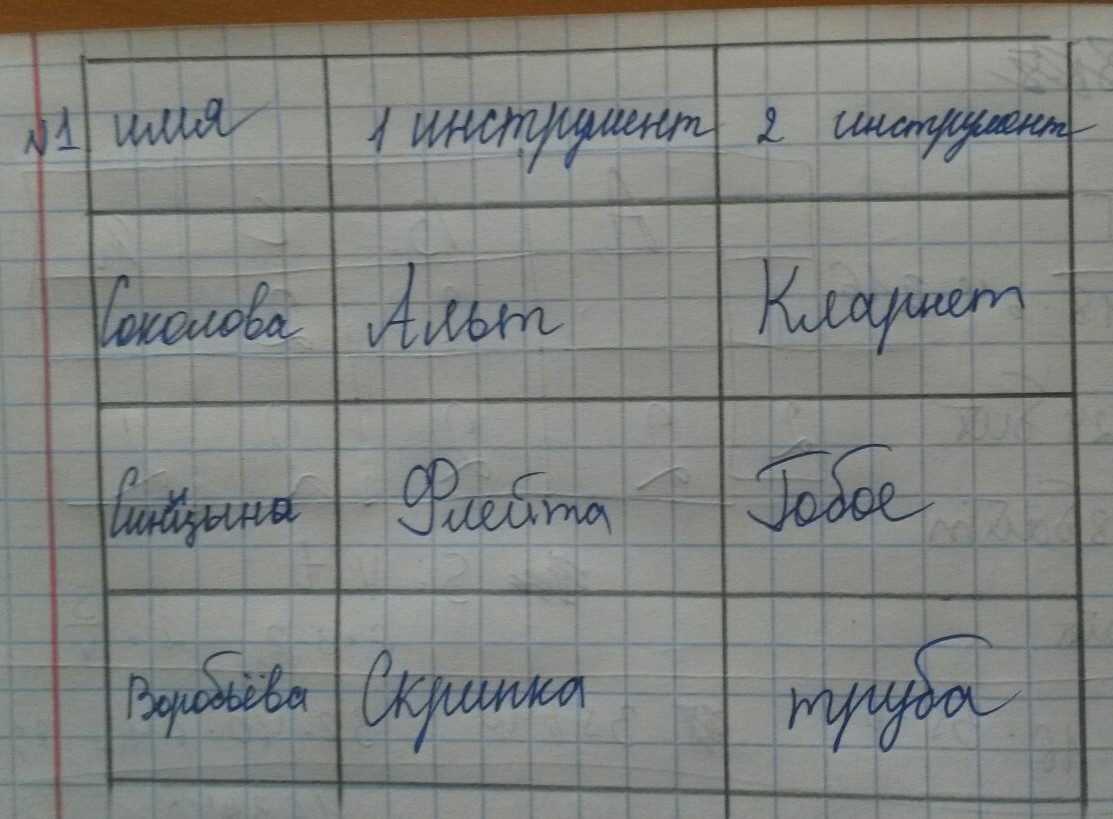 №1 имя 1 инструмент 2 инструмент
Соколова Альт Кларнет
Синицына Флейта Гобое
Воробьёва Скрипка труба